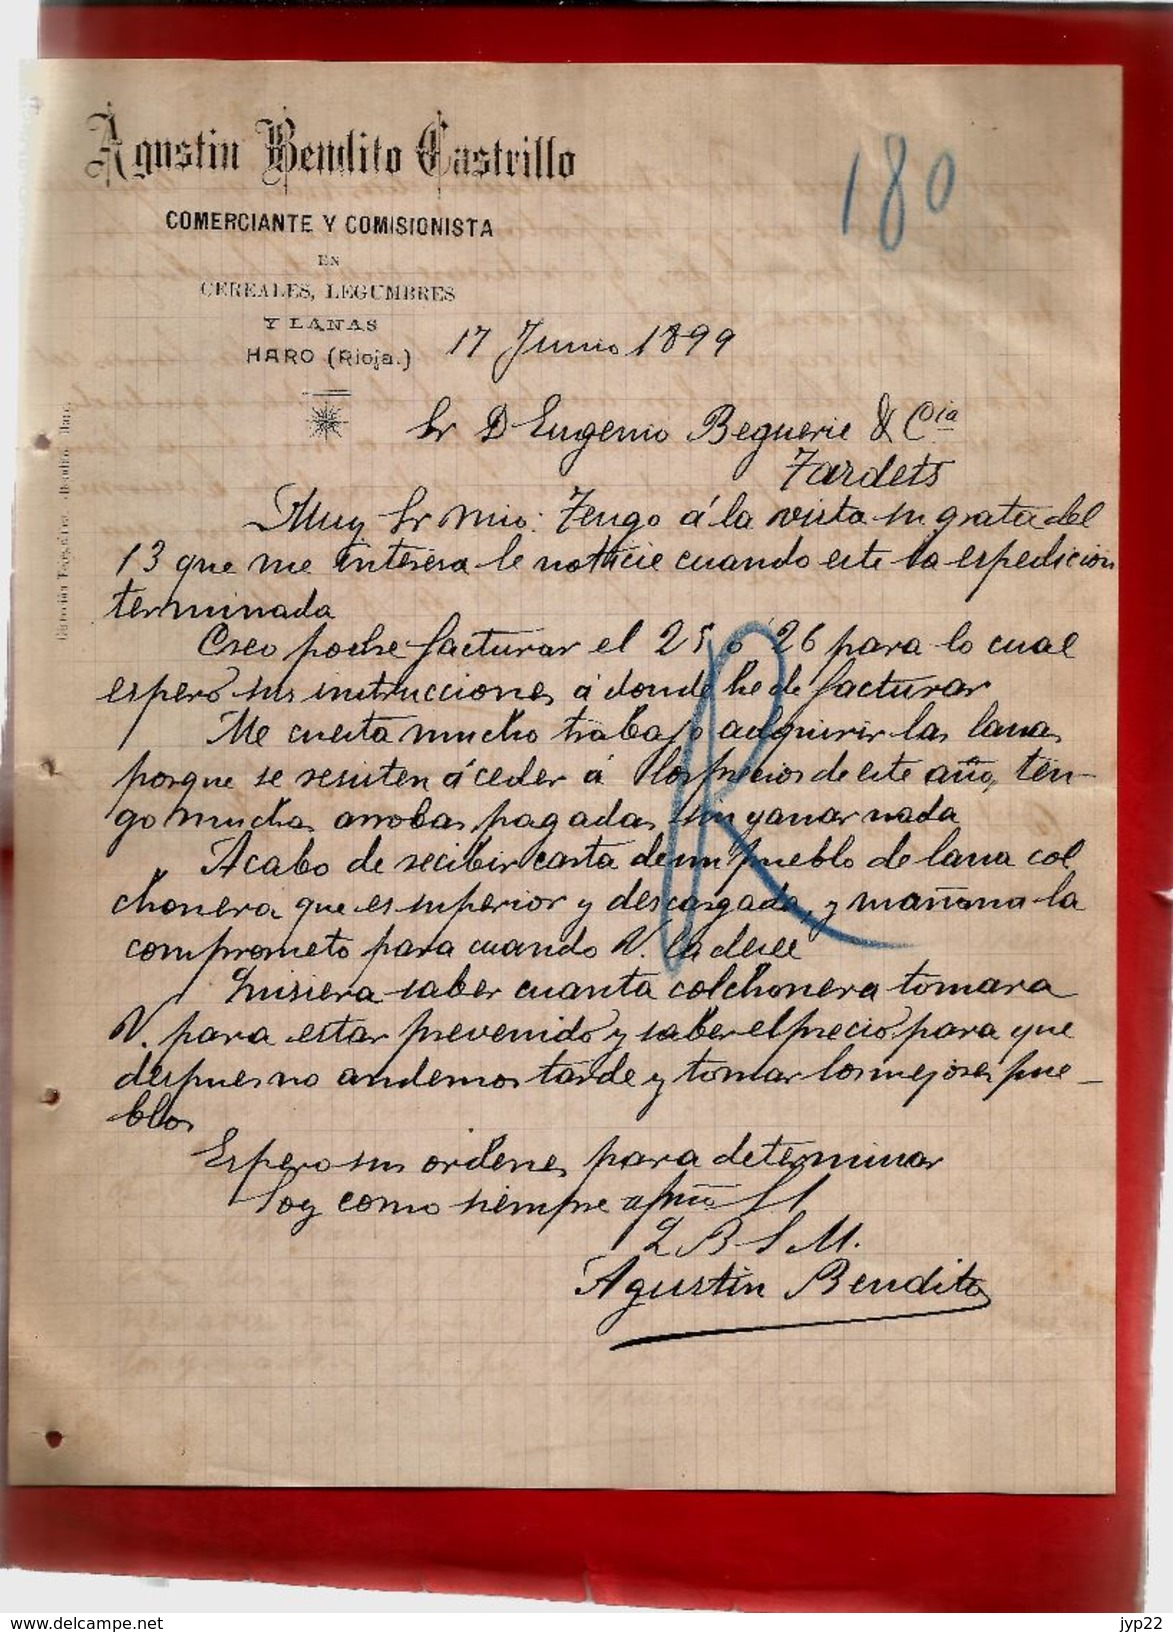 Agustin Bendito Castrillo
180
COMERCIANTE Y COMISIONISTA
EN
CEREALES, LEGUMBRES
Y LANAS
HARO (Rioja.)
17 Junio 1899
Sr D Eugenio Beguerie & Cia
Tardets
Muy Sr mio: Tengo á la vista su grata del
13 que me interesa le notticie cuando este la espedicion
terminada
Creo podre facturar el 25 o 26 para lo cual
espero sus instrucciones á donde he de facturar
Me cuesta mucho trabajo adquirir las lanas
porque se resisten á ceder á los precios de este año, ten-
go muchas arrobas pagadas sin ganar nada
Acabo de recibir carta de un pueblo de lana col
chonera que es superior y descargada, y mañana la
comprometo para cuando V. la desee
Quisiera saber cuanta colchonera tomara
V. para estar prevenido y saber el precio para que
despues no andemos tarde y tomar los mejores pue-
blos
Espero sus ordenes para determinar
Soy como siempre afmo SS
Q B S M.
Agustin Bendito
R
www.delcampe.net
jyp22